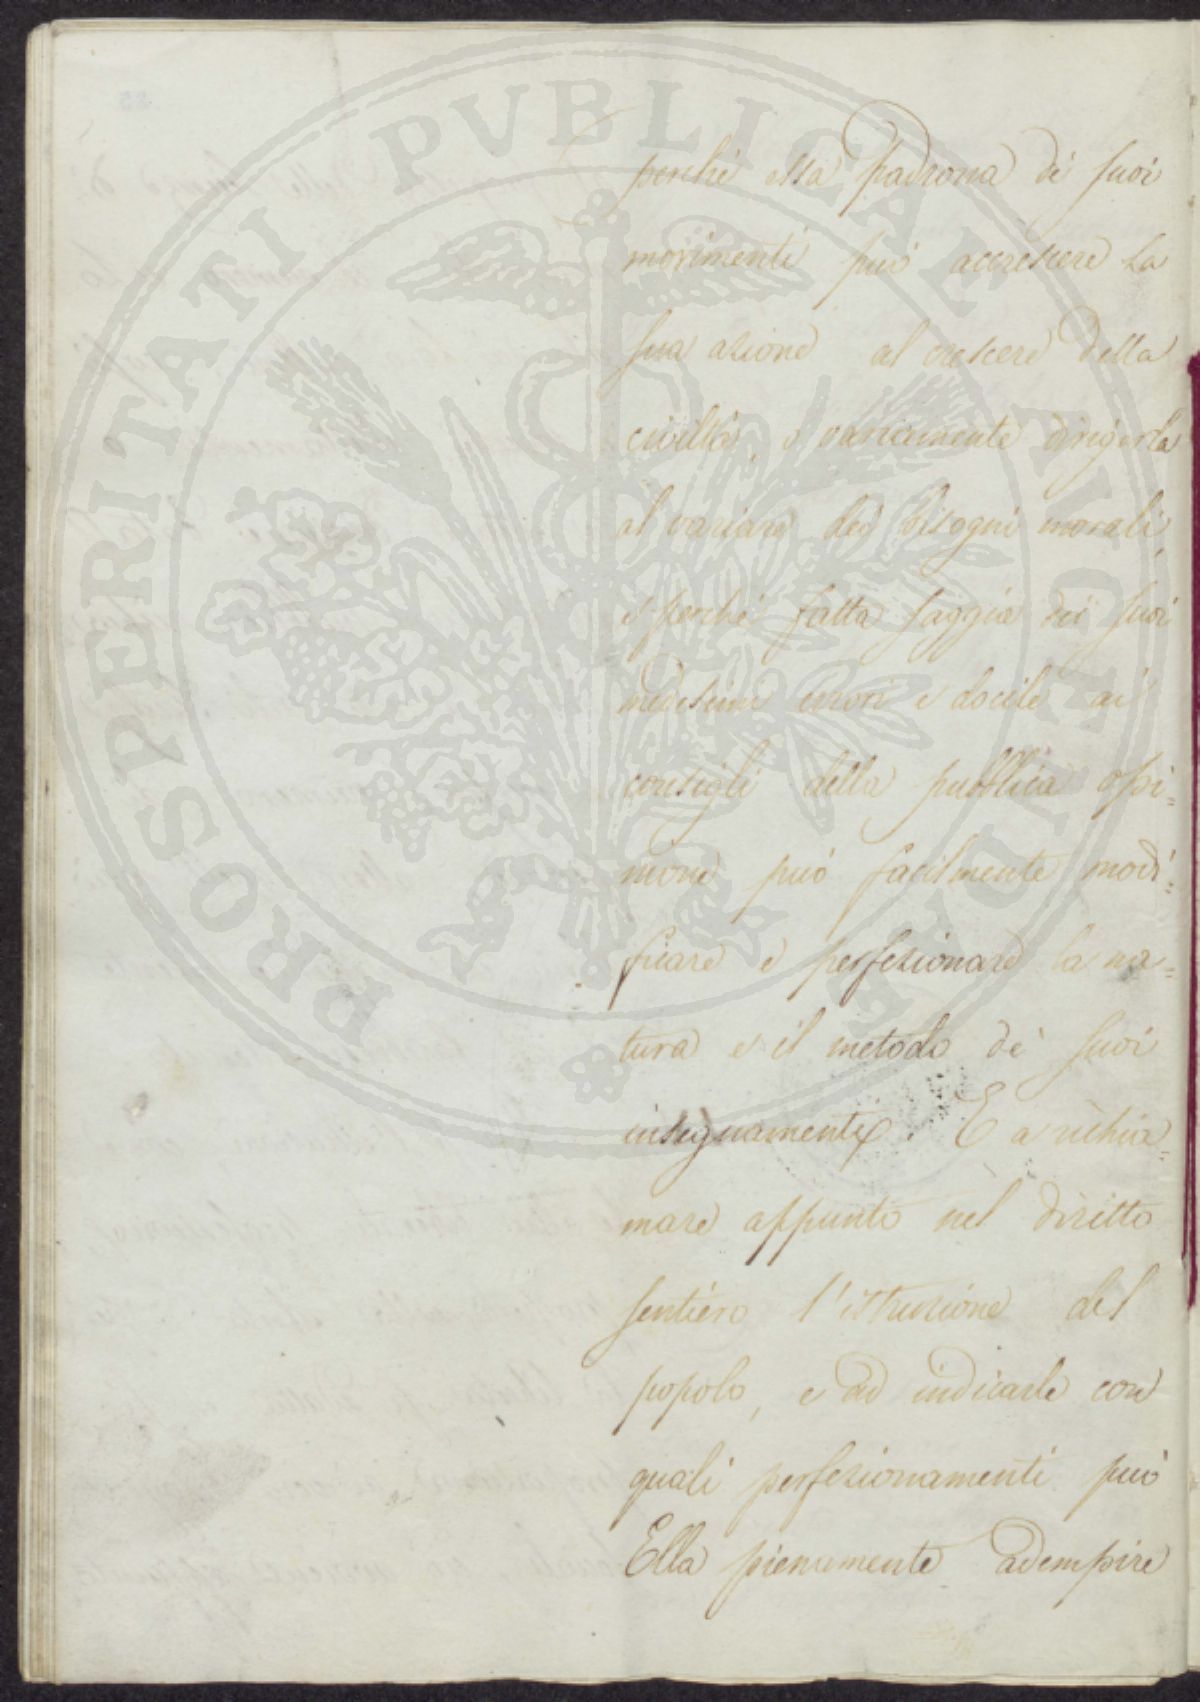 PROSPERITATI PUBLICAE AUGENDAE
perchè essa padrona di suoi
movimenti può accrescere la
sua azione al crescere della
civiltà, e variamente dirigerla
al variare dei bisogni morali,
e perchè fatta saggia dei suoi
medesimi errori e docile ai
consigli della pubblica opi=
nione può facilmente modi=
ficare e perfezionare la na=
tura e il metodo de' suoi
insegnamenti. E a richia=
mare appunto nel diritto
sentiero l'istruzione del
popolo, e ad indicarle con
quali perfezionamenti può
Ella pienamente adempire